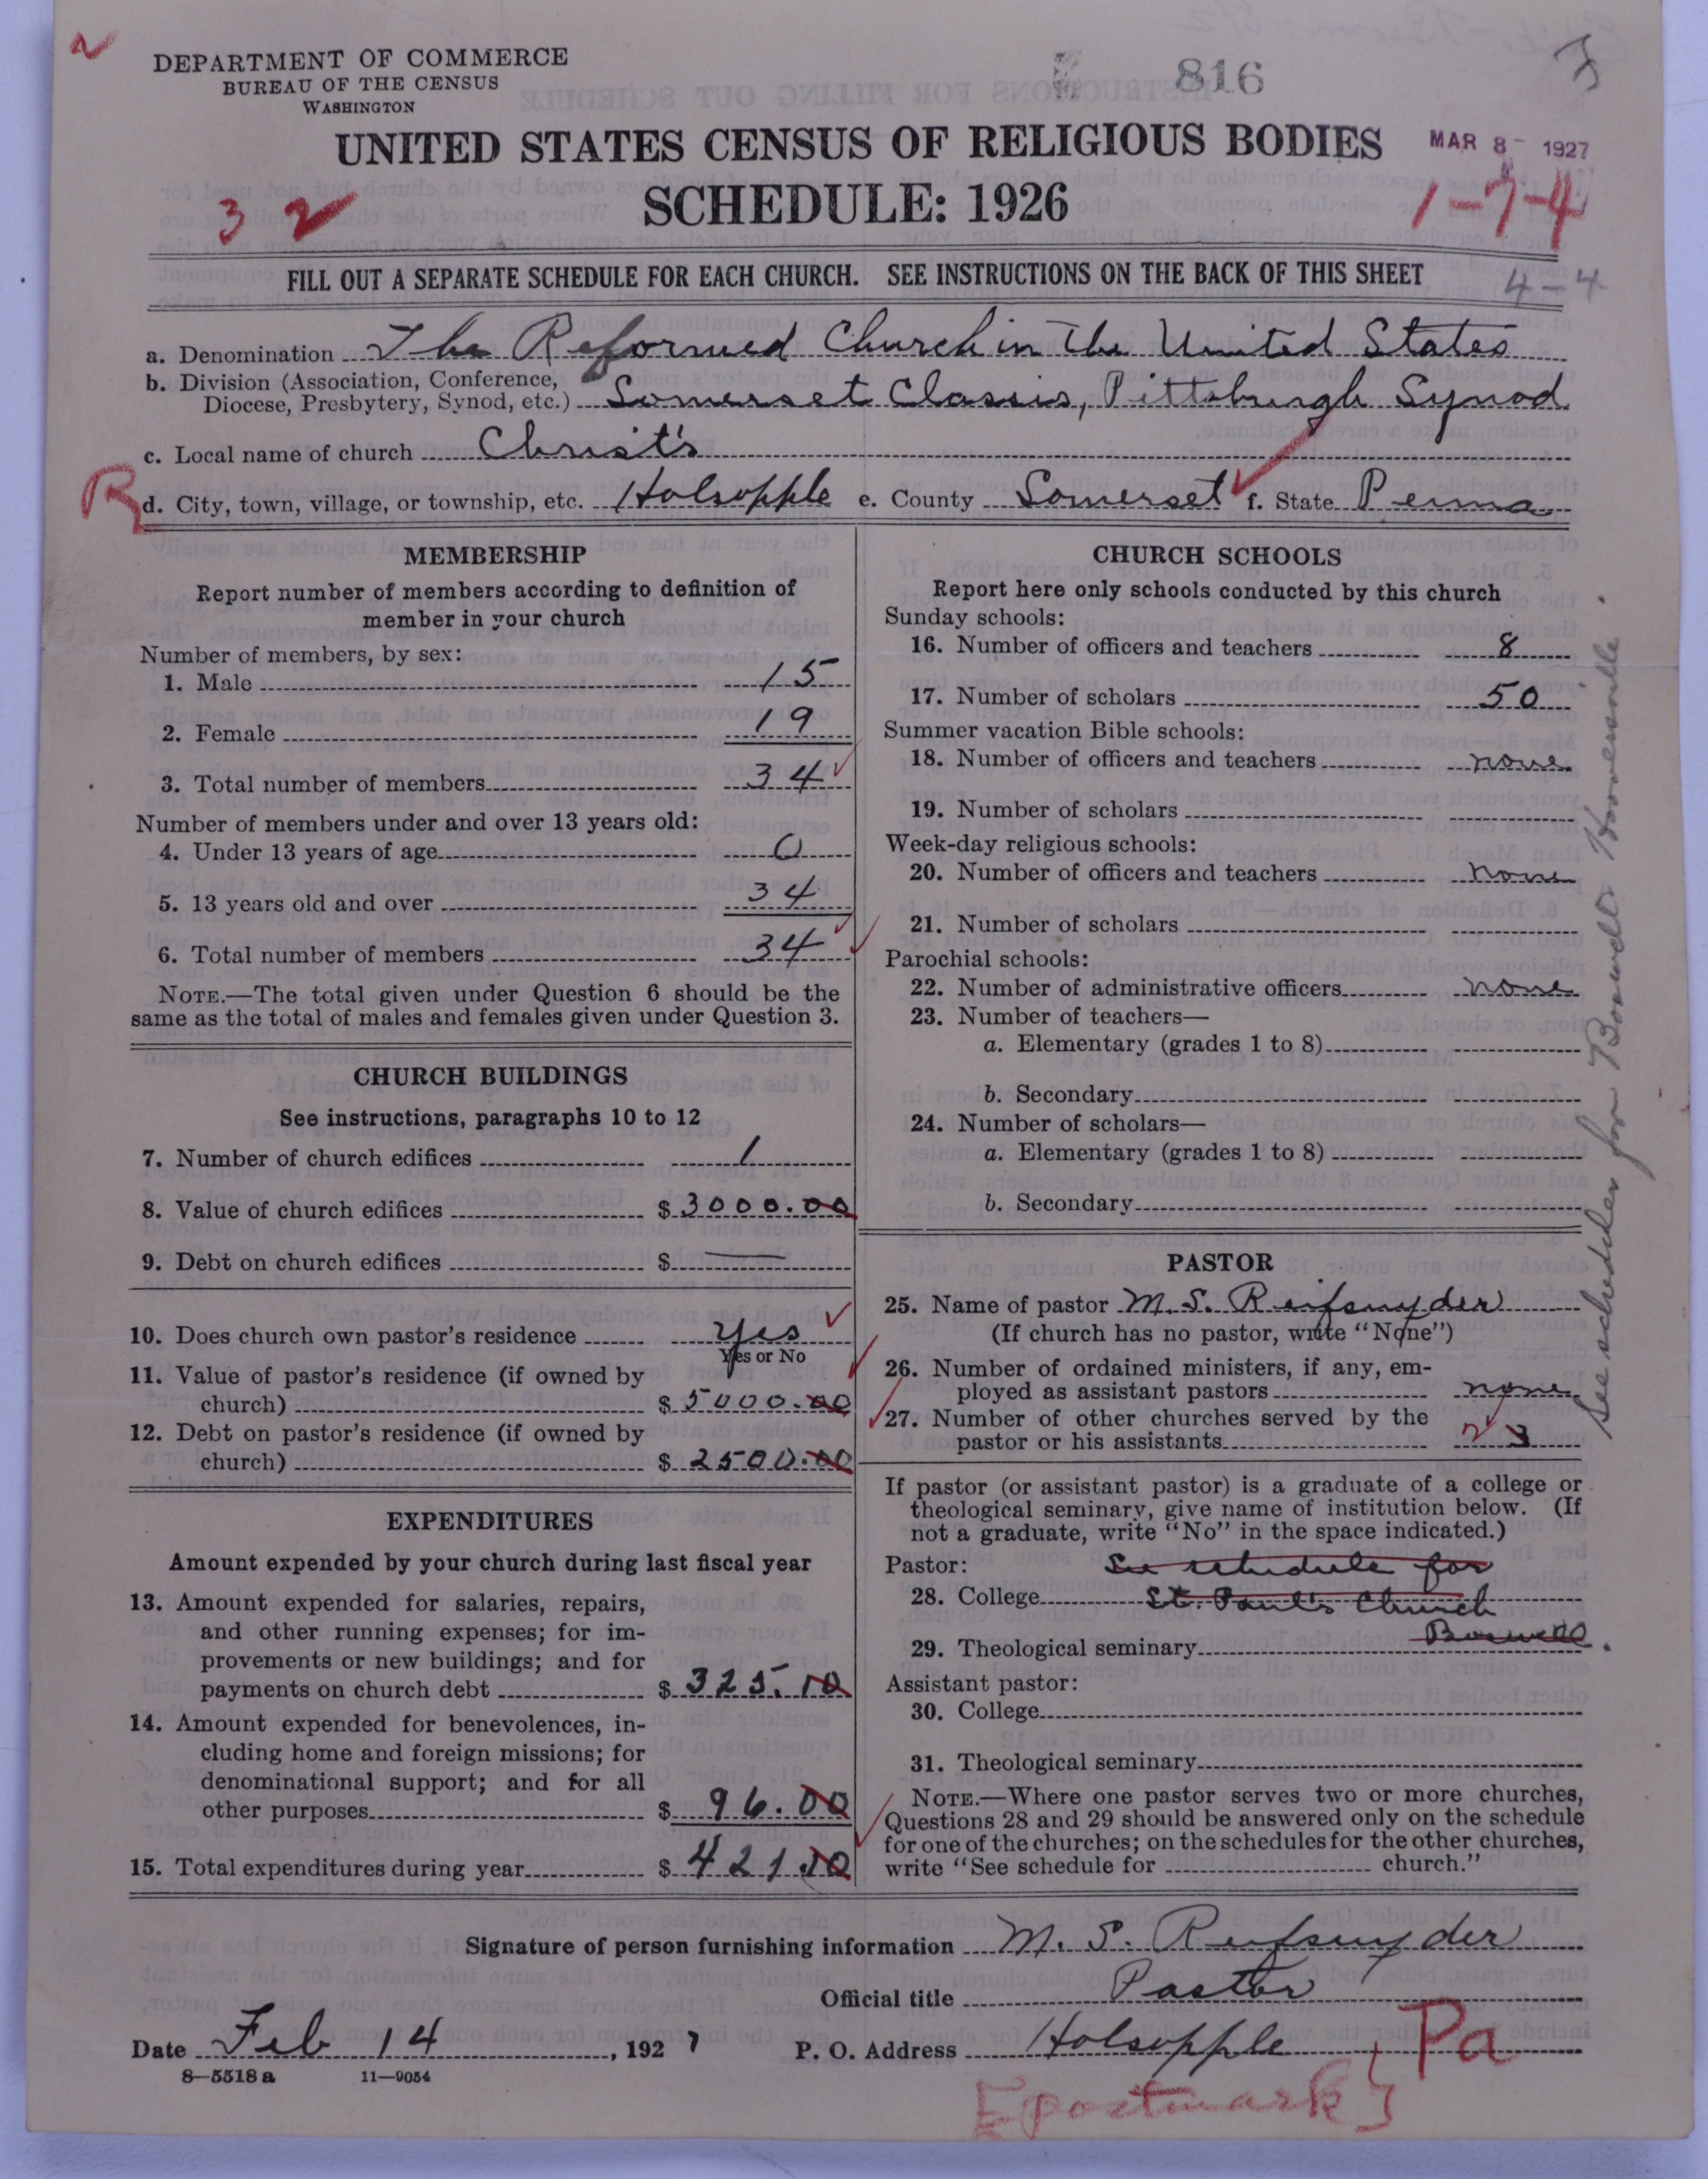 DEPARTMENT OF COMMERCE
BUREAU OF THE CENSUS
WASHINGTON
816
UNITED STATES CENSUS OF RELIGIOUS BODIES
MAR 8 - 1927
SCHEDULE: 1926
3 2
1-7-4
FILL OUT A SEPARATE SCHEDULE FOR EACH CHURCH. SEE INSTRUCTIONS ON THE BACK OF THIS SHEET
4-4
a. Denomination The Reformed Church in the United States
b. Division (Association, Conference, Diocese, Presbytery, Synod, etc.) Somerset Classis, Pittsburgh Synod
c. Local name of church Christ's
R
d. City, town, village, or township, etc. Holsopple e. County Somerset f. State Penna.
MEMBERSHIP
Report number of members according to definition of
member in your church
Number of members, by sex:
1. Male 15
2. Female 19
3. Total number of members 34
Number of members under and over 13 years old:
4. Under 13 years of age 0
5. 13 years old and over 34
6. Total number of members 34
NOTE.—The total given under Question 6 should be the
same as the total of males and females given under Question 3.
CHURCH BUILDINGS
See instructions, paragraphs 10 to 12
7. Number of church edifices 1
8. Value of church edifices $ 3000.00
9. Debt on church edifices $ —
10. Does church own pastor's residence yes
Yes or No
11. Value of pastor's residence (if owned by
church) $ 5000.00
12. Debt on pastor's residence (if owned by
church) $ 2500.00
EXPENDITURES
Amount expended by your church during last fiscal year
13. Amount expended for salaries, repairs,
and other running expenses; for im-
provements or new buildings; and for
payments on church debt $ 325.10
14. Amount expended for benevolences, in-
cluding home and foreign missions; for
denominational support; and for all
other purposes $ 96.00
15. Total expenditures during year $ 421.10
CHURCH SCHOOLS
Report here only schools conducted by this church
Sunday schools:
16. Number of officers and teachers 8
17. Number of scholars 50
Summer vacation Bible schools:
18. Number of officers and teachers none
19. Number of scholars
Week-day religious schools:
20. Number of officers and teachers none
21. Number of scholars
Parochial schools:
22. Number of administrative officers none
23. Number of teachers—
a. Elementary (grades 1 to 8)
b. Secondary
24. Number of scholars—
a. Elementary (grades 1 to 8)
b. Secondary
PASTOR
25. Name of pastor M. S. Reifsnyder
(If church has no pastor, write "None")
26. Number of ordained ministers, if any, em-
ployed as assistant pastors none
27. Number of other churches served by the
pastor or his assistants 2 3
If pastor (or assistant pastor) is a graduate of a college or
theological seminary, give name of institution below. (If
not a graduate, write "No" in the space indicated.)
Pastor: See schedule for
28. College St. Paul's Church
29. Theological seminary Boswell.
Assistant pastor:
30. College
31. Theological seminary
NOTE.—Where one pastor serves two or more churches,
Questions 28 and 29 should be answered only on the schedule
for one of the churches; on the schedules for the other churches,
write "See schedule for church."
See schedules for Boswell
Signature of person furnishing information M. S. Reifsnyder
Official title Pastor
Date Feb 14, 1927 P. O. Address Holsopple, Pa
8—5518 a 11—9054
[postmark]